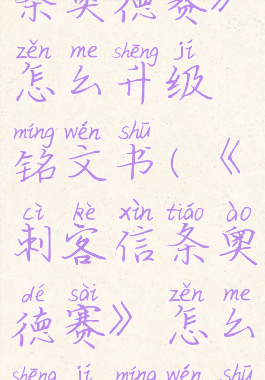 条奥德赛》
zěn me shēng jí
怎么升级
míng wén shū
铭文书(《
cì kè xìn tiáo ào
刺客信条奥
dé sài zěn me
德赛》 怎么
shēng jí míng wén shū